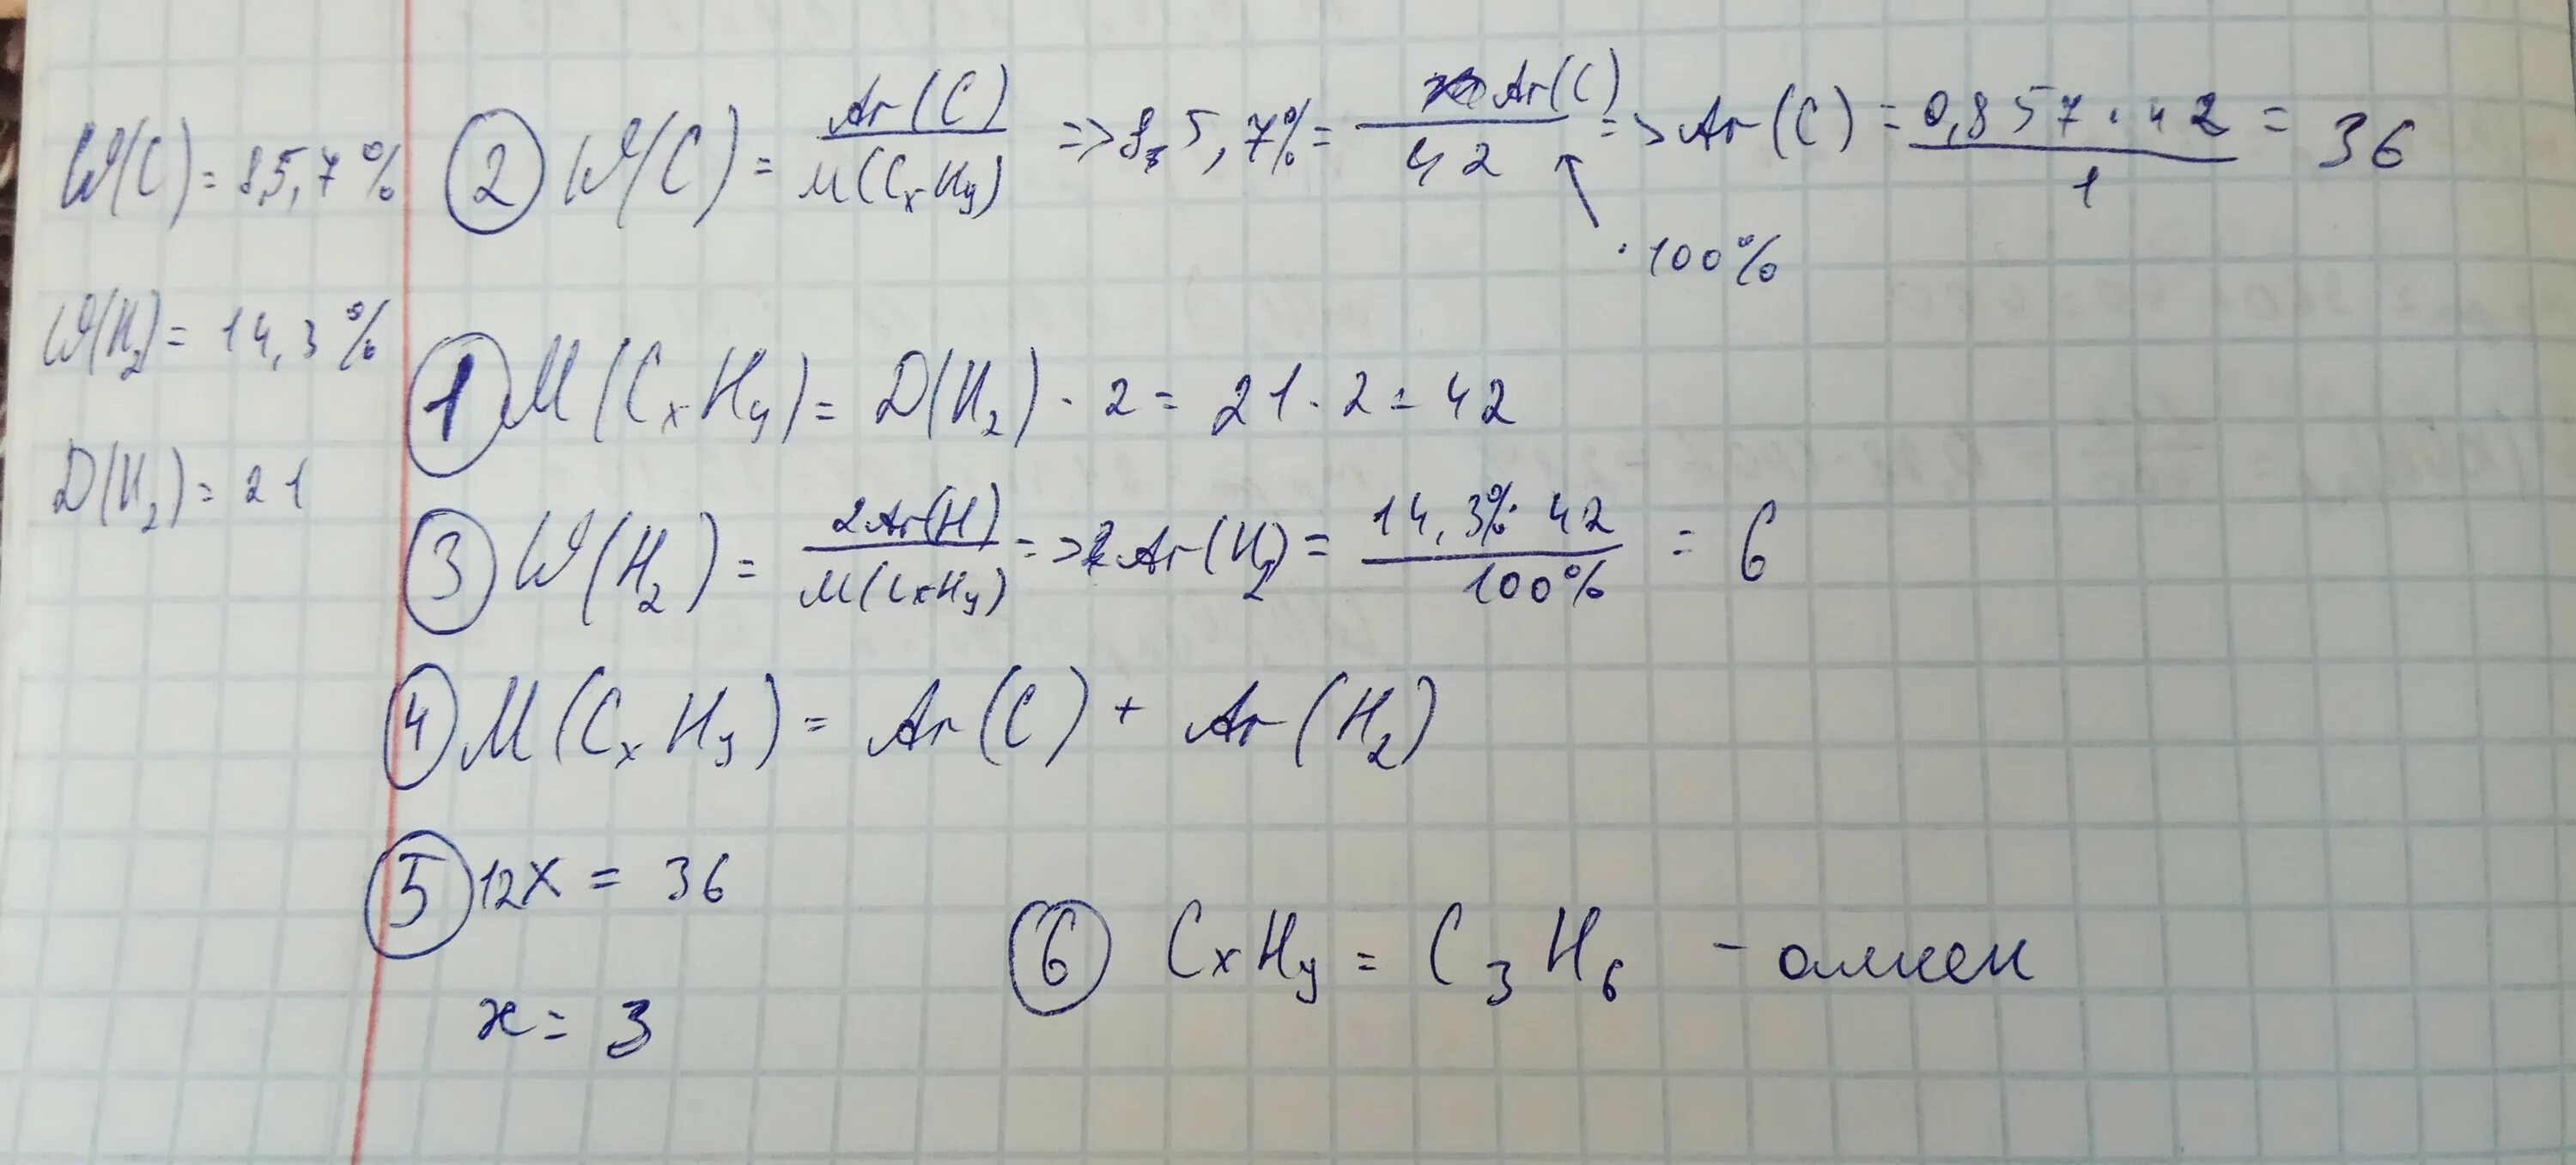 W(C) = 85,7%
W(H₂) = 14,3%
D(H₂) = 21
② W(C) = Ar(C) / M(CxHy) => 85,7% = Ar(C) / 42 · 100% => Ar(C) = 0,857 · 42 / 1 = 36
① M(CxHy) = D(H₂) · 2 = 21 · 2 = 42
③ W(H₂) = 2Ar(H) / M(CxHy) => Ar(H₂) = 14,3% · 42 / 100% = 6
④ M(CxHy) = Ar(C) + Ar(H₂)
⑤ 12x = 36
x = 3
⑥ CxHy = C₃H₆ - алкен